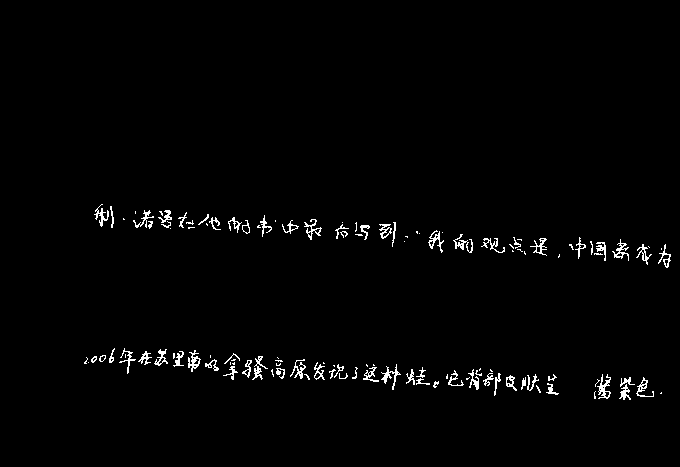 利·诺马在他的书中最后写到:“我的观点是,中国要成为
2006年在苏里南的拿骚高原发现了这种蛙。它背部皮肤呈 酱紫色.